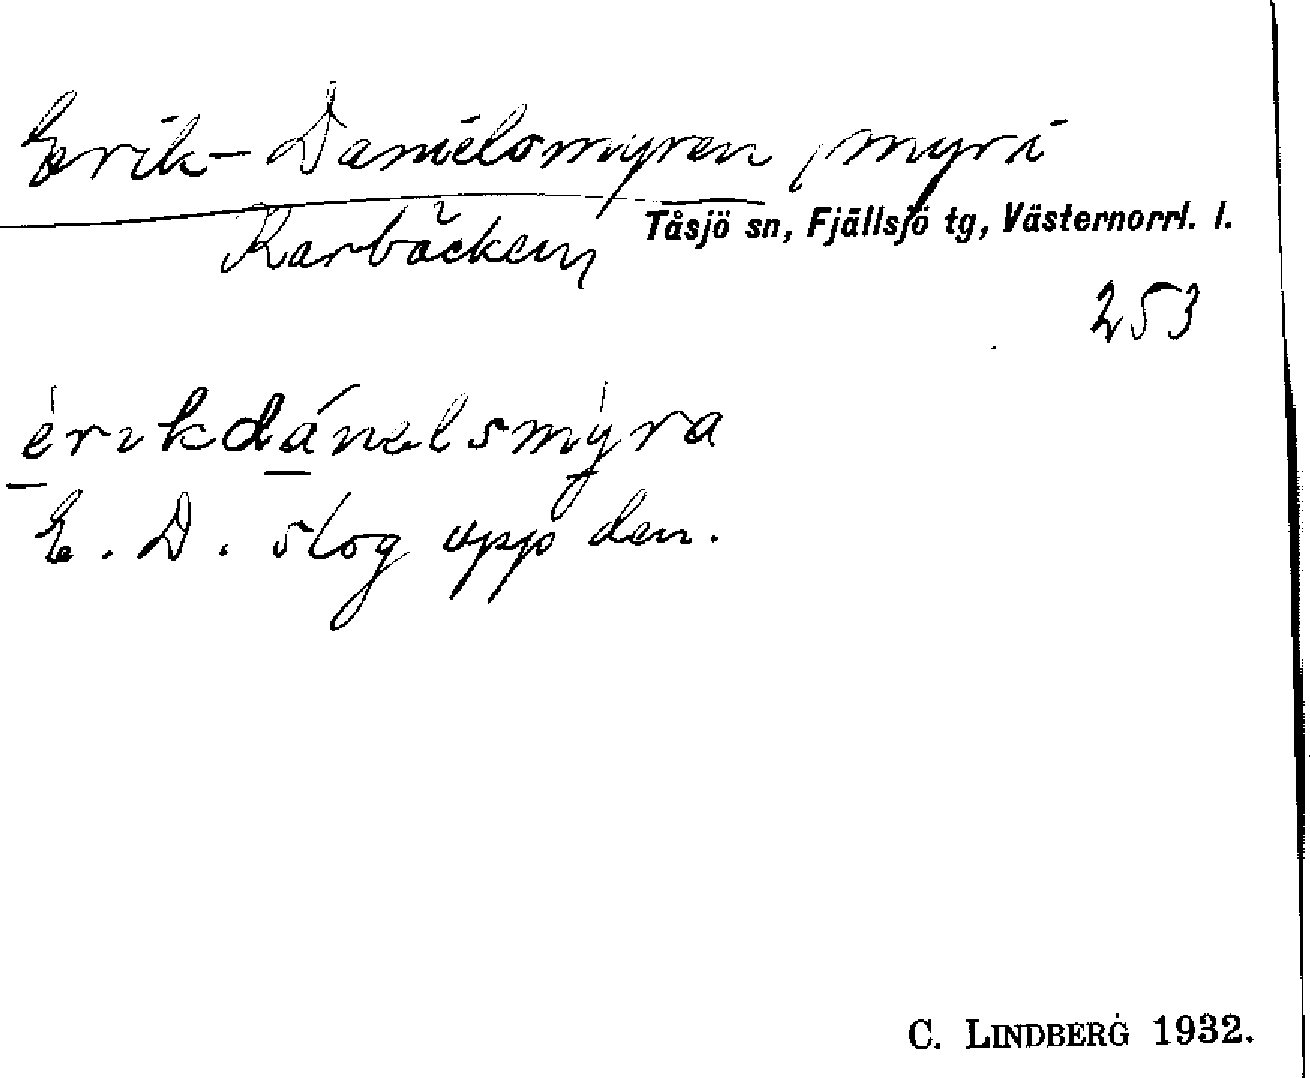 Erik-Danielsmyren, myr i
Karbäcken Tåsjö sn, Fjällsjö tg, Västernorrl. l.
253
érikdánelsmýra
E. D. slog upp den.
C. LINDBERG 1932.